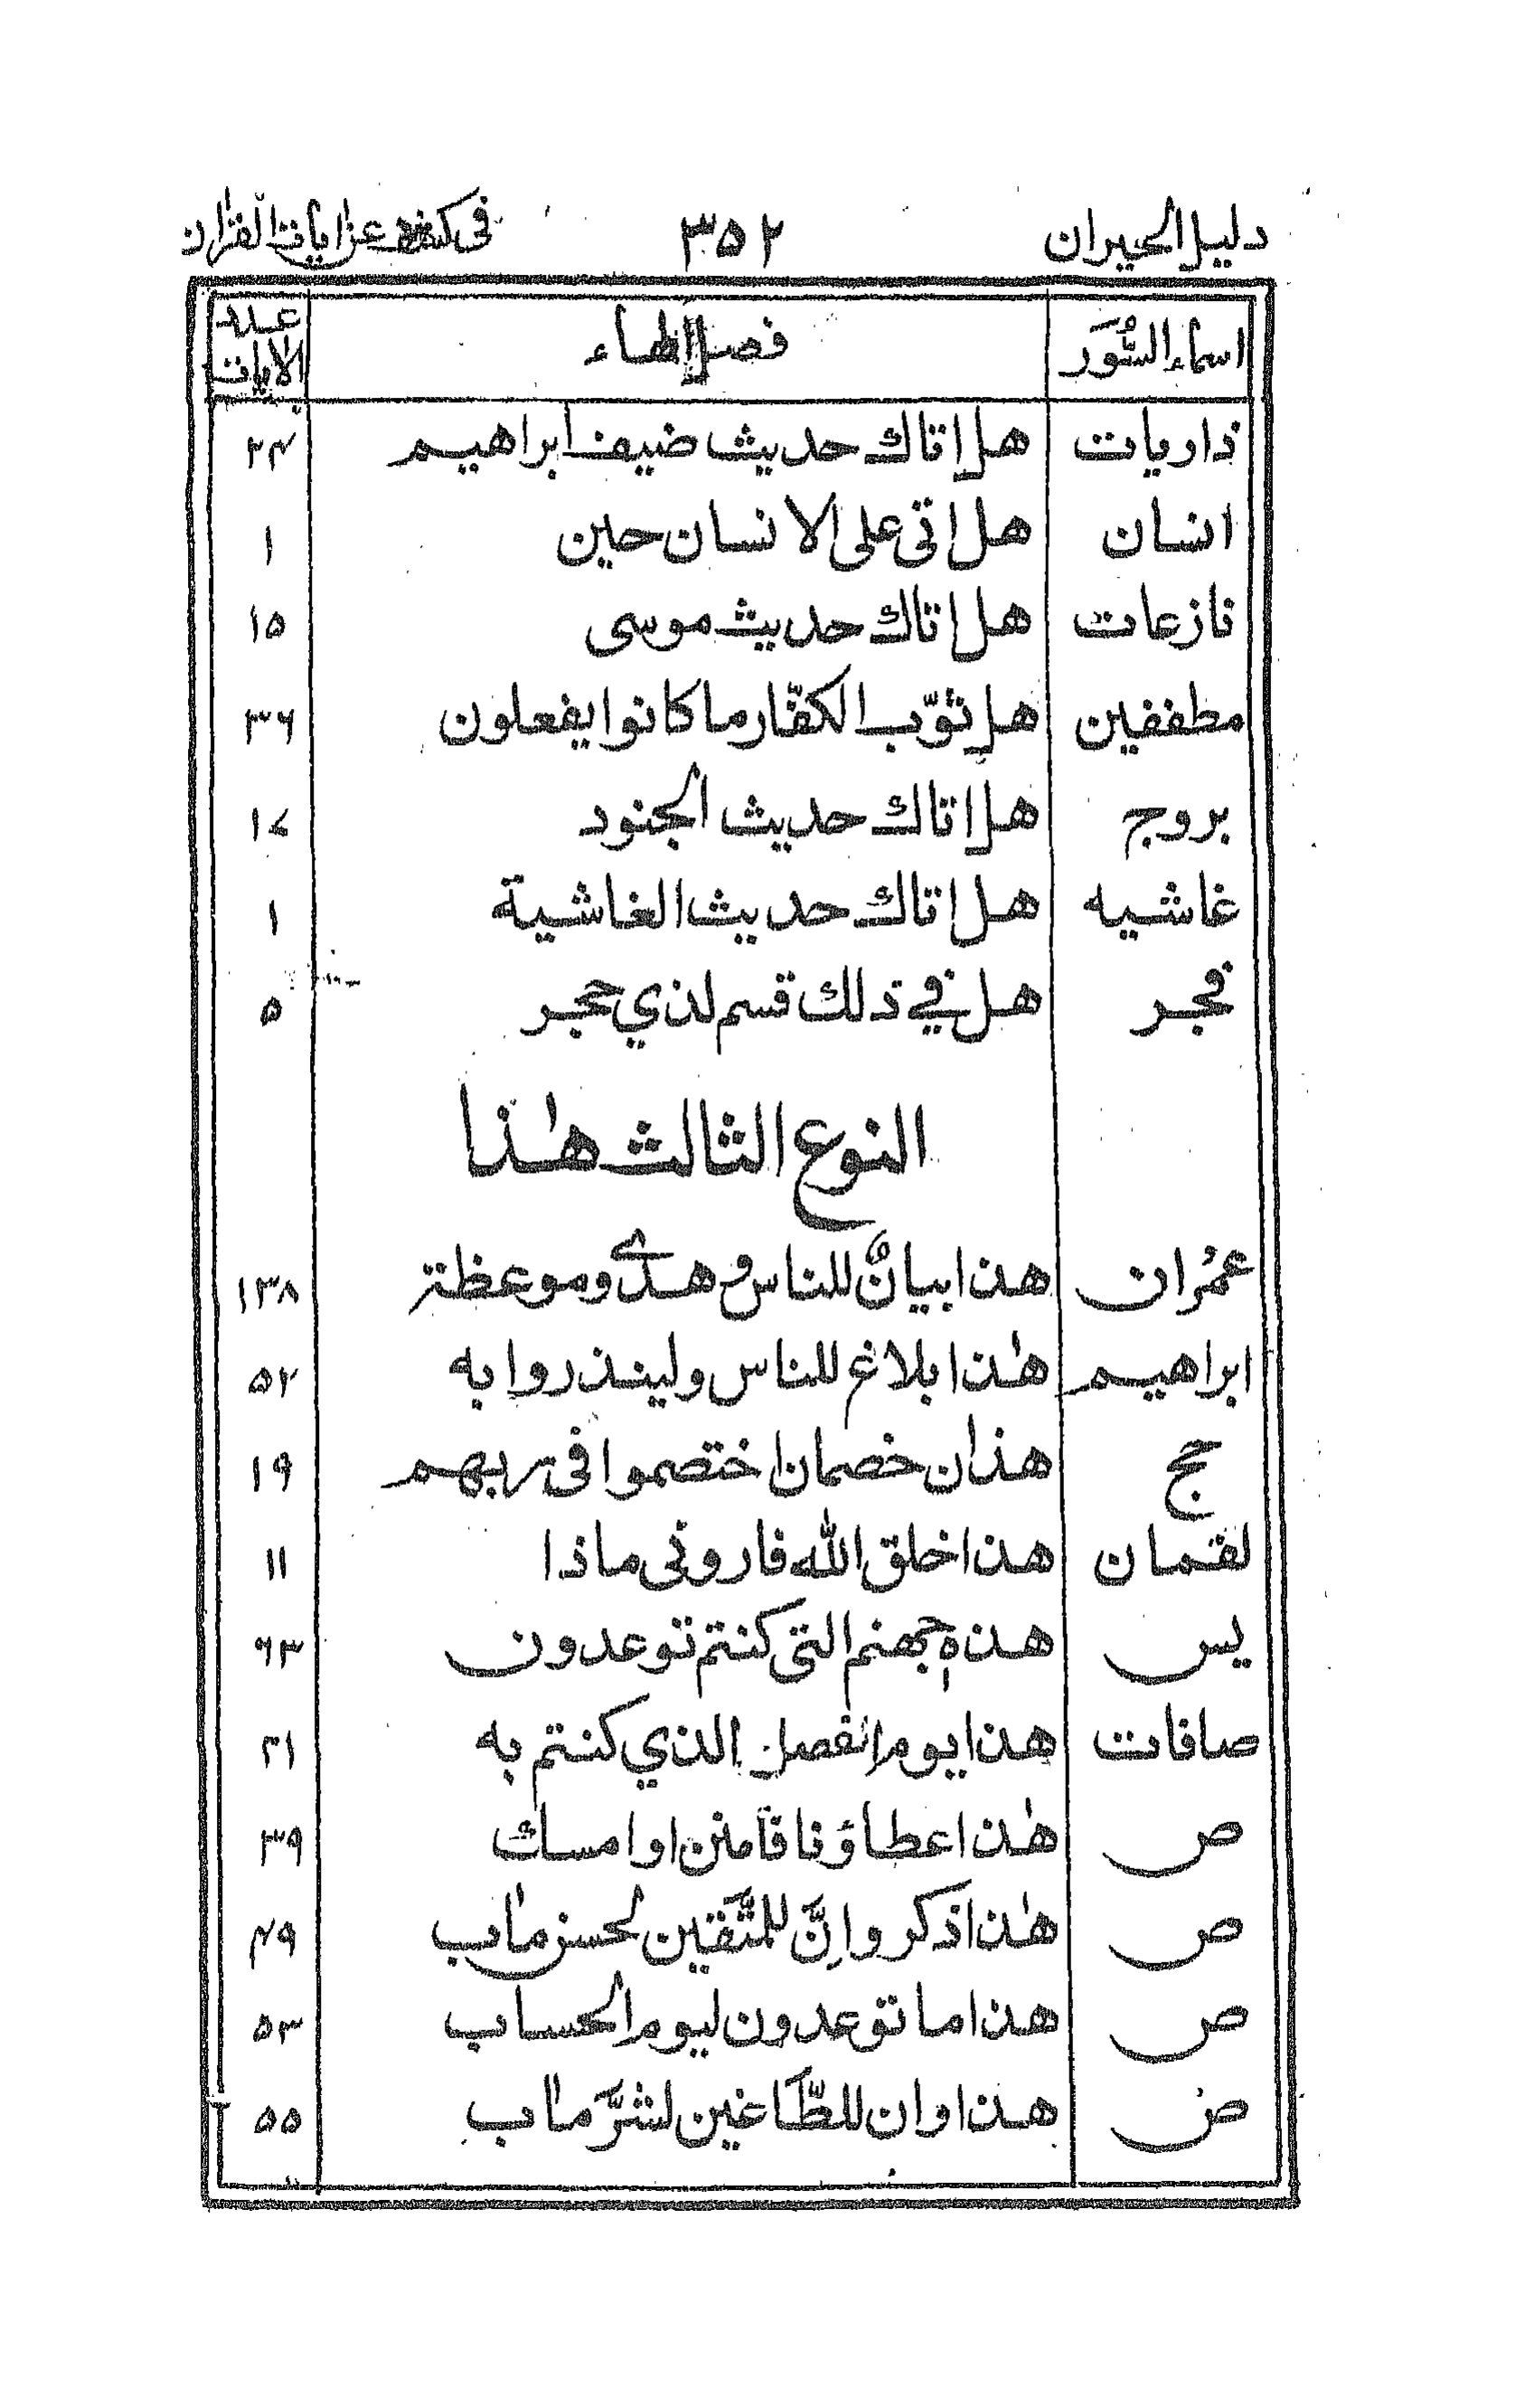 دليل الحيران ٣٥٢ فى كشف عن ايات القران
اسماء السُّوَر فصل الهاء عدد الايات
ذاريات هل اتاك حديث ضيف ابراهيم ٢٤
انسان هل اتى على الانسان حين ١
نازعات هل اتاك حديث موسى ١٥
مطففين هل ثوّب الكفّار ما كانوا يفعلون ٣٦
بروج هل اتاك حديث الجنود ١٧
غاشيه هل اتاك حديث الغاشية ١
فجر هل في ذلك قسم لذي حجر ٥
النوع الثالث هٰذا
عمران هذا بيانٌ للناس و هدًى وموعظة ١٣٨
ابراهيم هٰذا بلاغ للناس ولينذروا به ٥٢
حج هذان خصمان اختصموا فى ربهم ١٩
لقمان هذا خلق الله فارونى ماذا ١١
يس هذه جهنم التى كنتم توعدون ٦٣
صافات هذا يوم الفصل الذي كنتم به ٢١
ص هٰذا عطاؤنا فامنن او امسك ٣٩
ص هٰذا ذكر و اِنَّ للمتَّقين لحسن ماٰب ٤٩
ص هذا ما توعدون ليوم الحساب ٥٣
ص هذا وان للطّاغين لشرَّ ماٰب ٥٥